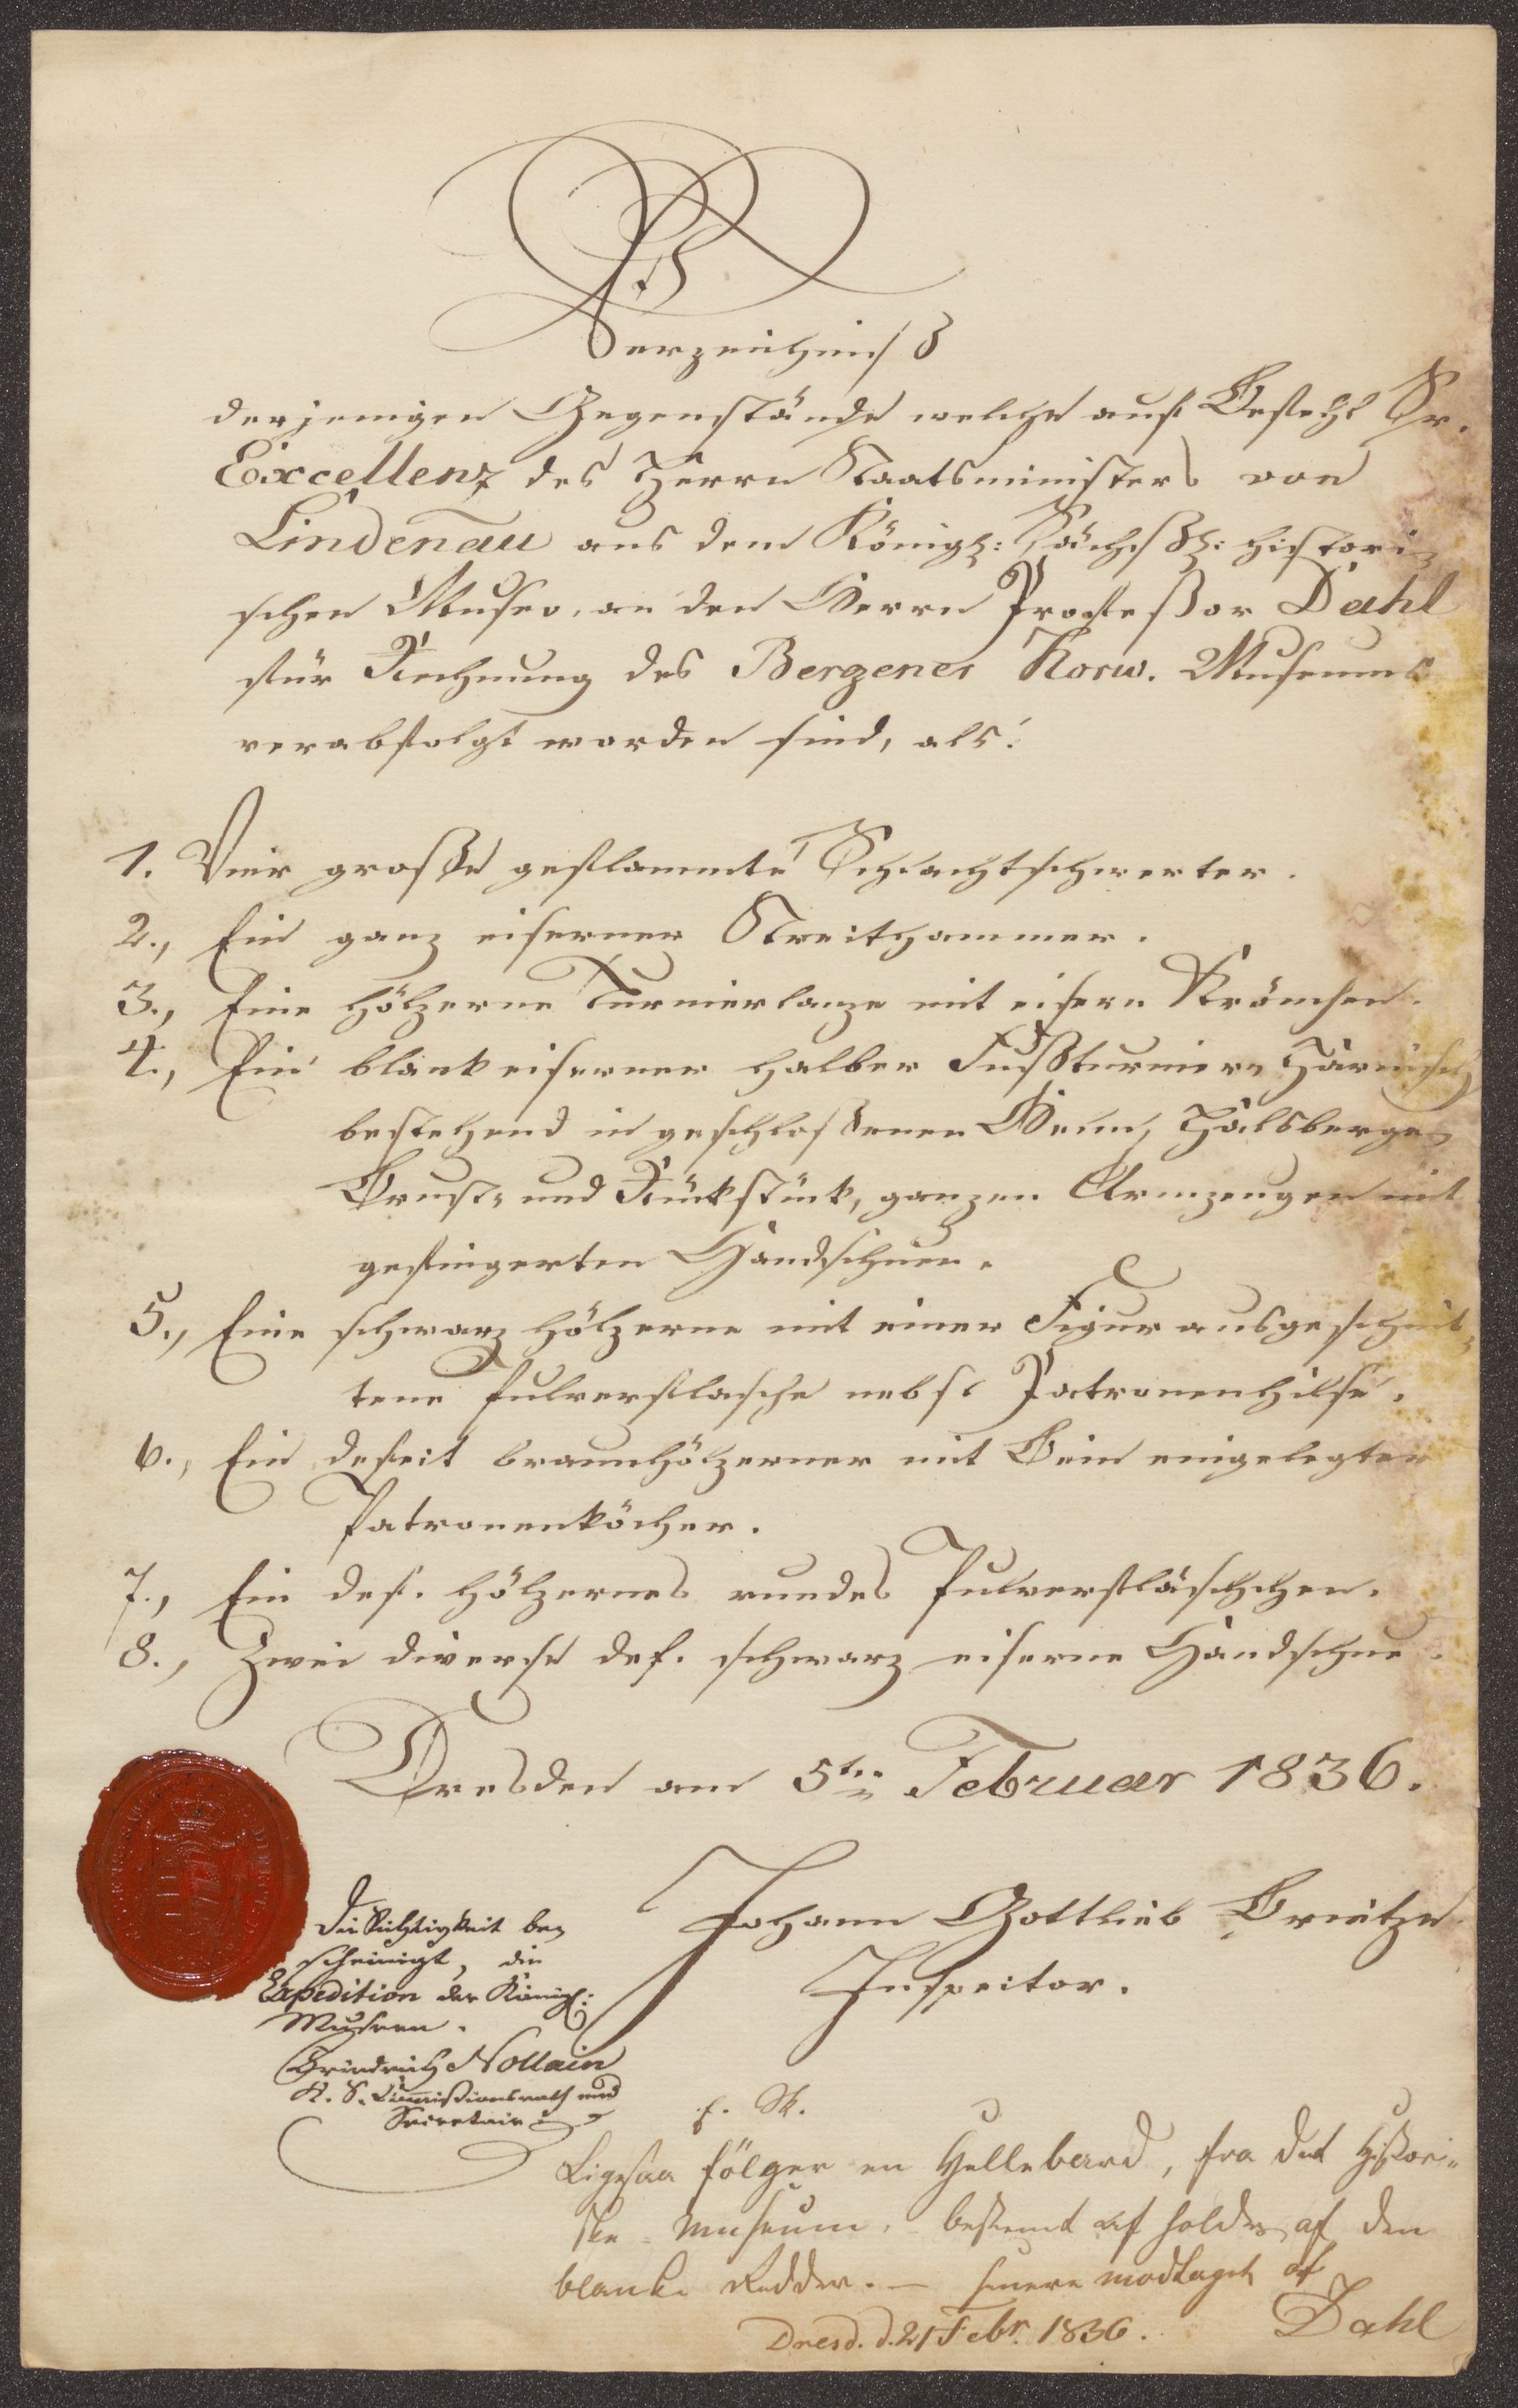 Verzeichniß
derjenigen Gegenstände welche auf Befehl Sr.
Excellenz des Herrn Staatsministers von
Lindenau aus dem Königl: Sächsßl: histori-
schen Museo, an den Herrn Profeßor Dahl
für Rechnung des Bergener Norw. Museums
verabfolgt worden sind, als:
1. Vier große geflammte Schlachtschwerter.
2., Ein ganz eiserner Streithammer.
3., Eine hölzerne Turnierlanze mit eisern Krönchen.
4., Ein blank eiserner halber Fußturnier-Harnisch
bestehend in geschloßenen Helm, Halsberge-
Brust- und Rückstück, ganzen Armzeugen mit
gefingerten Handschuen.
5., Eine schwarz hölzerne mit einer Figur ausgeschnit-
tene Pulverflasche nebst Patronenhilse.
6., Ein defect braunhölzerner mit Bein eingelegter
Patronenköcher.
7., Ein def. hölzernes rundes Pulverfläschchen.
8., Zwei diverse def. schwarz eiserne Handschue.
Dresden am 5ten Februar 1836.
Johann Gottlieb
Inspector.
Die Richtigkeit be-
scheinigt, die
Expedition der Königl:
Museen.
Friedrich Nollain
K. S. Commißionsrath und
Secretair
Ligesaa fölger en Hellebard, fra det histori-
ske Museum, bestemt at holdes af den
blanke Ridder. — modtaget af
Dresd. d. 21 Febr. 1836. Dahl